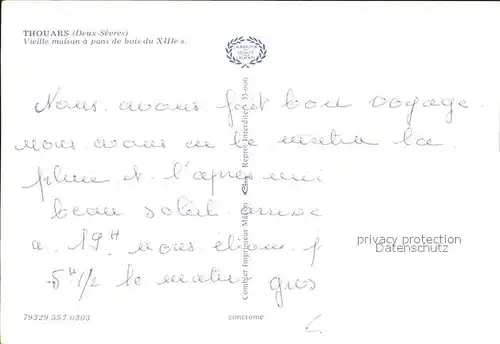 THOUARS (Deux-Sèvres)
Vieille maison à pans de bois du XIIIe s.
Nous avons fait bon voyage
nous avons eu le matin la
pluie et l'après midi
beau soleil arrivé
a 19H nous étions
5H 1/2 le matin gros
Combier Imprimeur Mâcon
79329 557.0303
cimcrome
privacy protection
DanmArtStamps